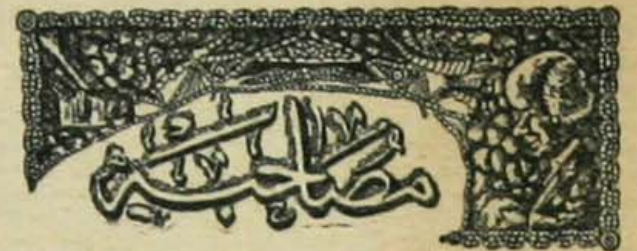 مصاحبه